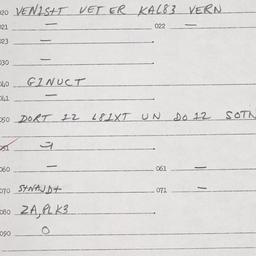 020 VENISHT VET ER KAL83 VERN
021 — 022 —
023 —
030 —
040 GINUCT
041 —
050 DORT 12 L81XT UN DO 12 SOTN
051
060 — 061 —
070 071 —
080 ZA,PLK3
090 O